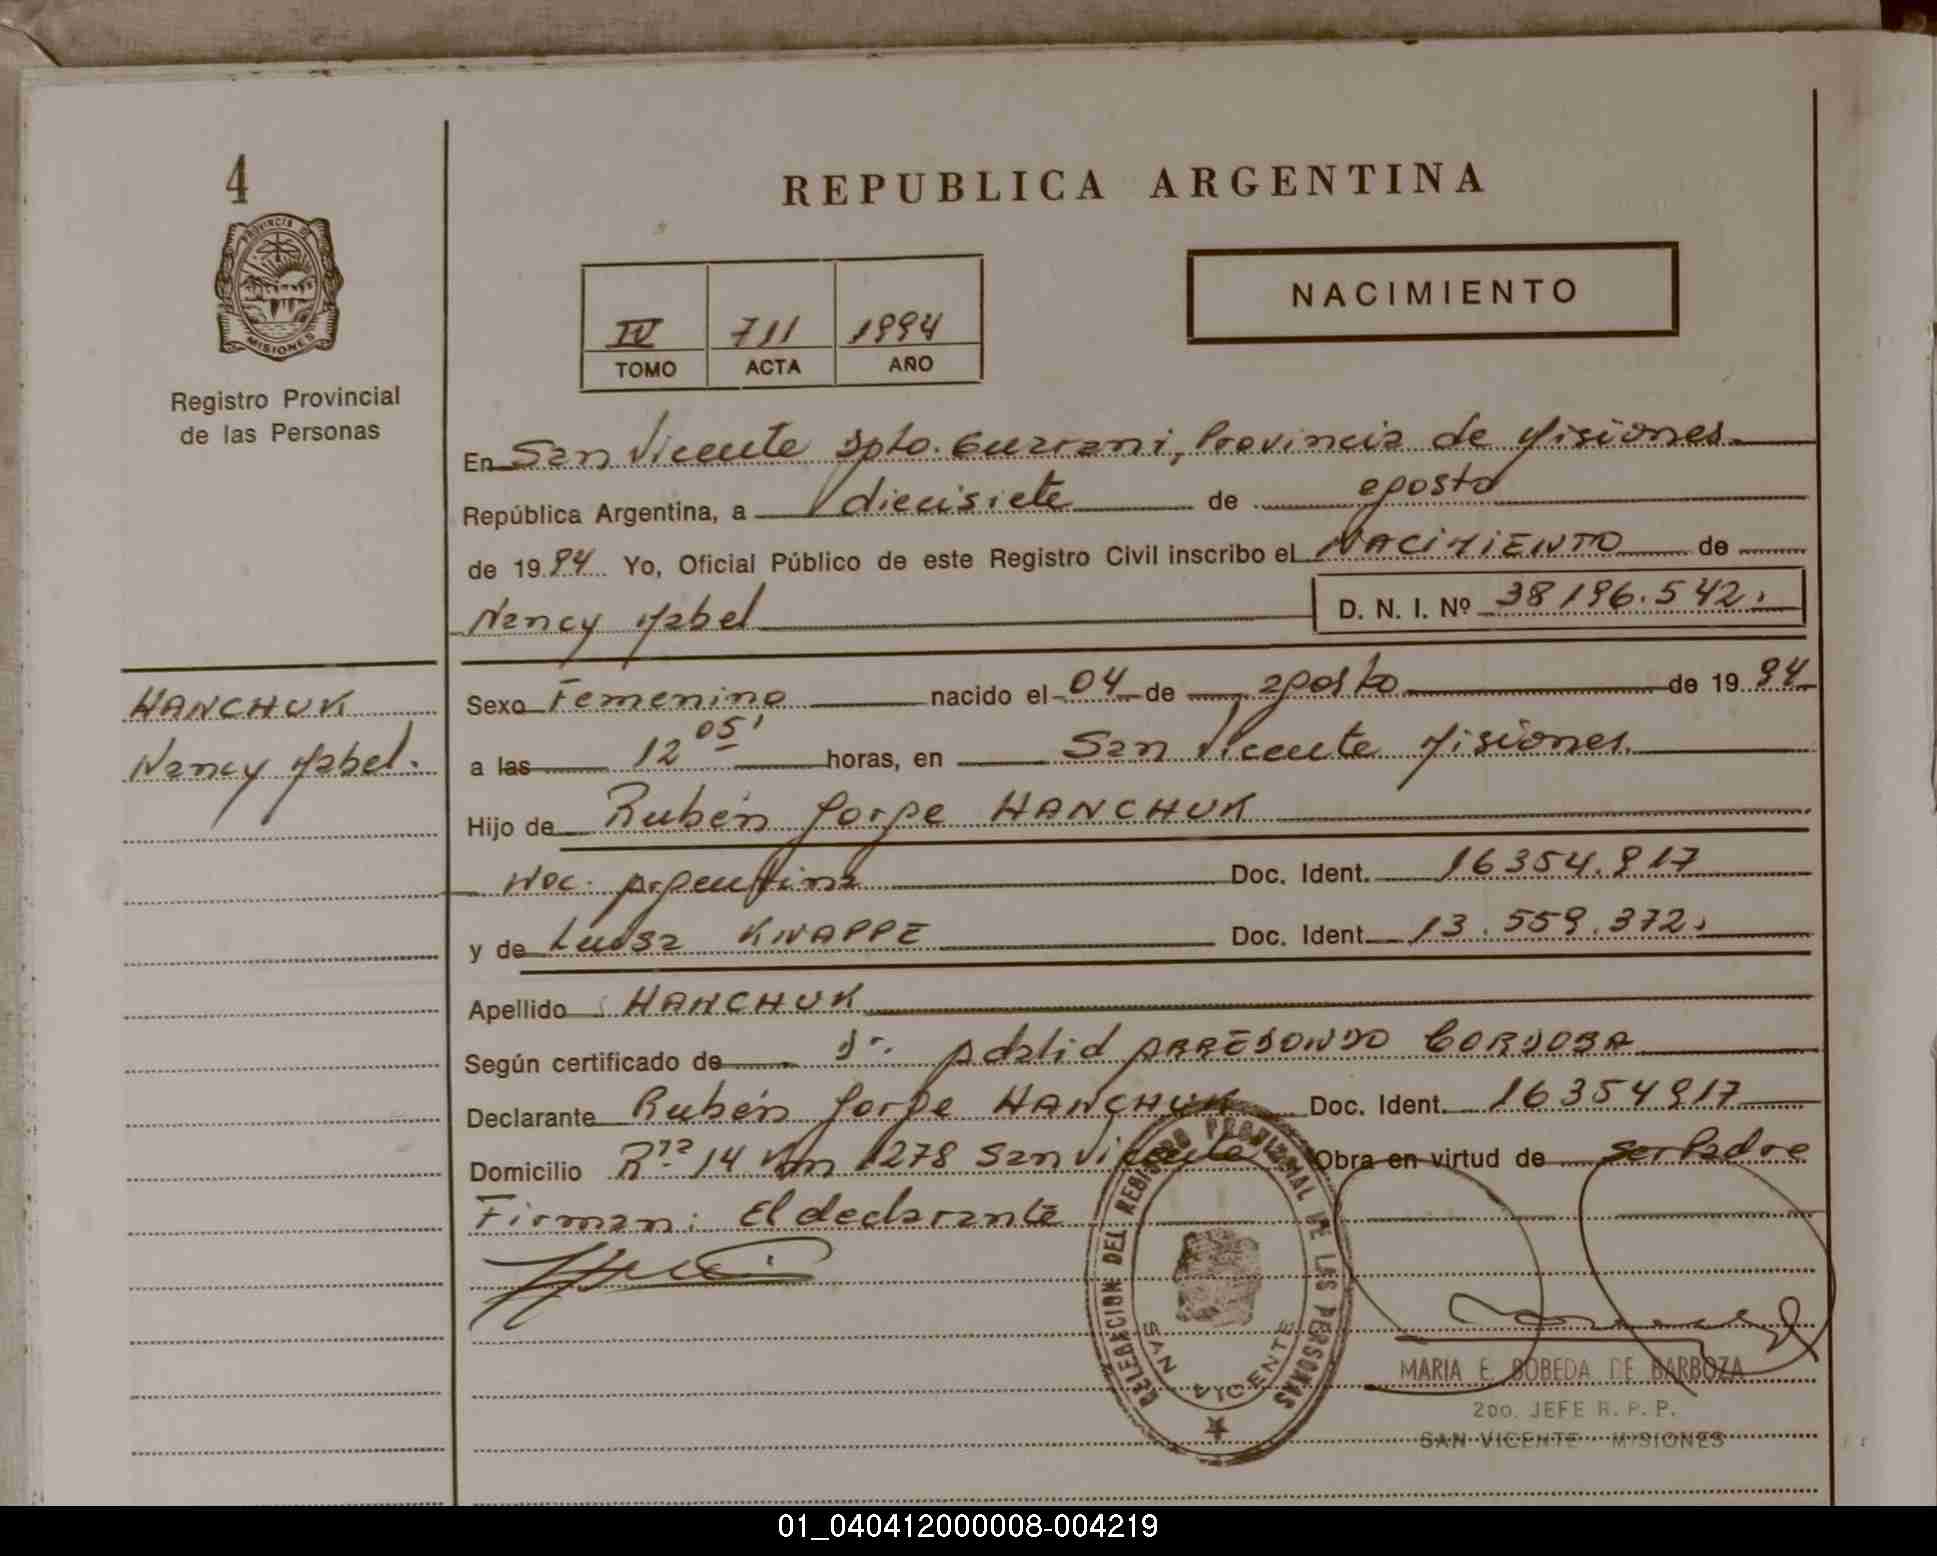 4
PROVINCIA DE
MISIONES
Registro Provincial
de las Personas
REPUBLICA ARGENTINA
NACIMIENTO
IV 711 1994
TOMO ACTA AÑO
En San Vicente Dpto. Guarani, Provincia de Misiones
República Argentina, a diecisiete de agosto
de 1994 Yo, Oficial Público de este Registro Civil inscribo el NACIMIENTO de
Nancy Mabel D. N. I. Nº 38196.542.
HANCHUK
Nancy Mabel.
Sexo Femenino nacido el 04 de agosto de 1994
a las 12 05' horas, en San Vicente Misiones
Hijo de Rubén Jorge HANCHUK
Nac. Argentina Doc. Ident. 16354.917
y de Luisa KNAPPE Doc. Ident. 13.559.372.
Apellido HANCHUK
Según certificado de Dr. Adalid ARREDONDO CORDOBA
Declarante Rubén Jorge HANCHUK Doc. Ident. 16354917
Domicilio Rta 14 Km 1278 San Vicente Obra en virtud de ser Padre
Firman: El declarante
DELEGACION DEL REGISTRO PROVINCIAL DE LAS PERSONAS
SAN VICENTE
MARIA E. BOBEDA DE BARBOZA
2do. JEFE R. P. P.
SAN VICENTE - MISIONES
01_040412000008-004219